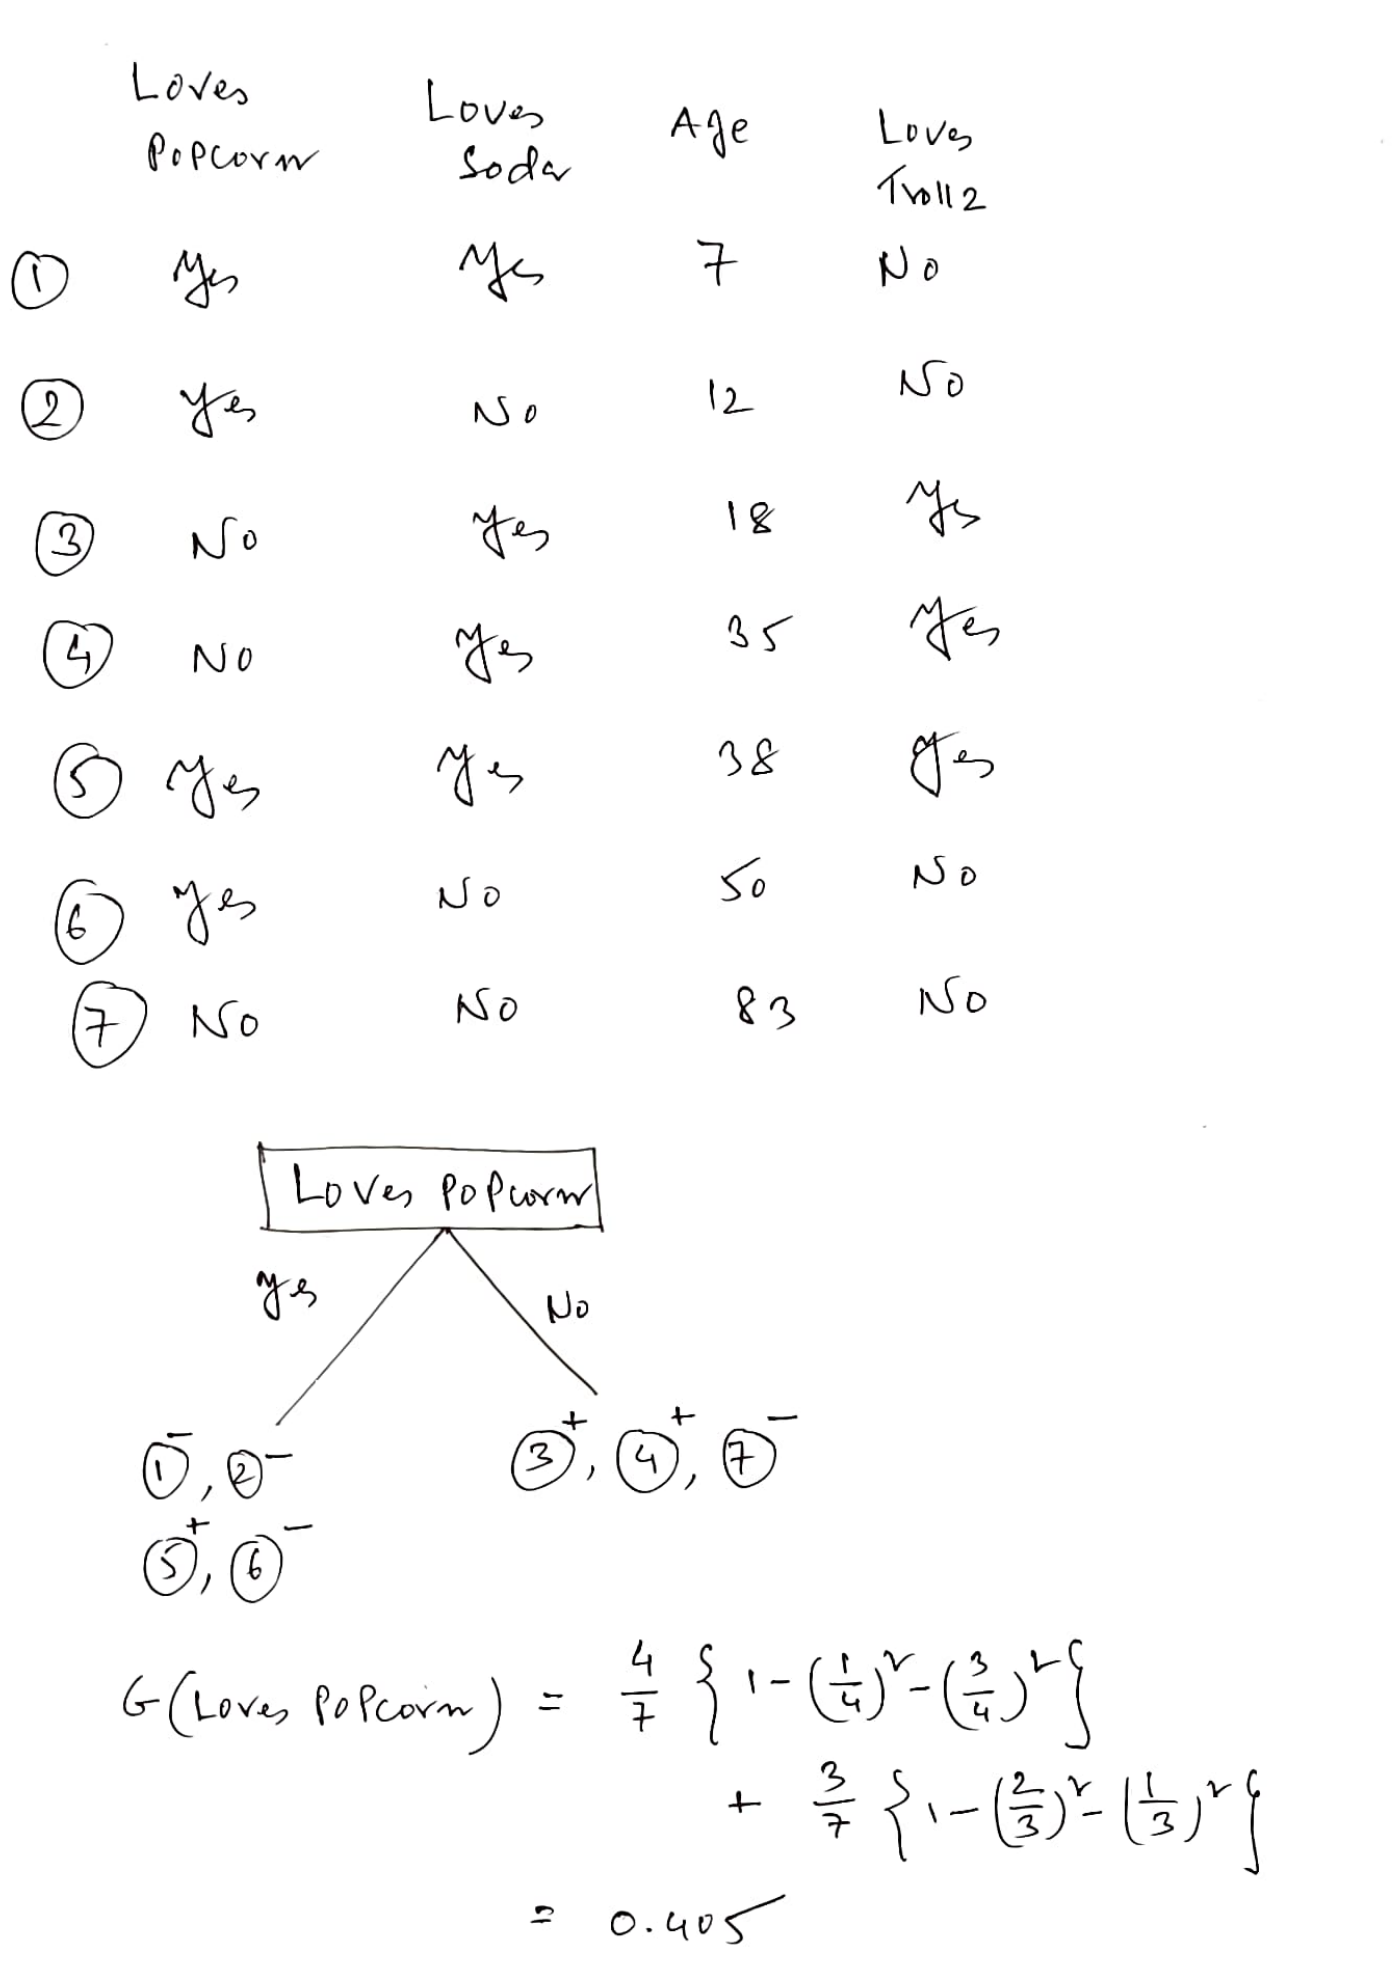 Loves Popcorn Loves Soda Age Loves Troll 2
① Yes Yes 7 No
② Yes No 12 No
③ No Yes 18 Yes
④ No Yes 35 Yes
⑤ Yes Yes 38 Yes
⑥ Yes No 50 No
⑦ No No 83 No
Loves Popcorn
Yes No
①⁻, ②⁻ ③⁺, ④⁺, ⑦⁻
⑤⁺, ⑥⁻
G(Loves Popcorn) = 4/7 { 1 - (1/4)² - (3/4)² }
+ 3/7 { 1 - (2/3)² - (1/3)² }
= 0.405